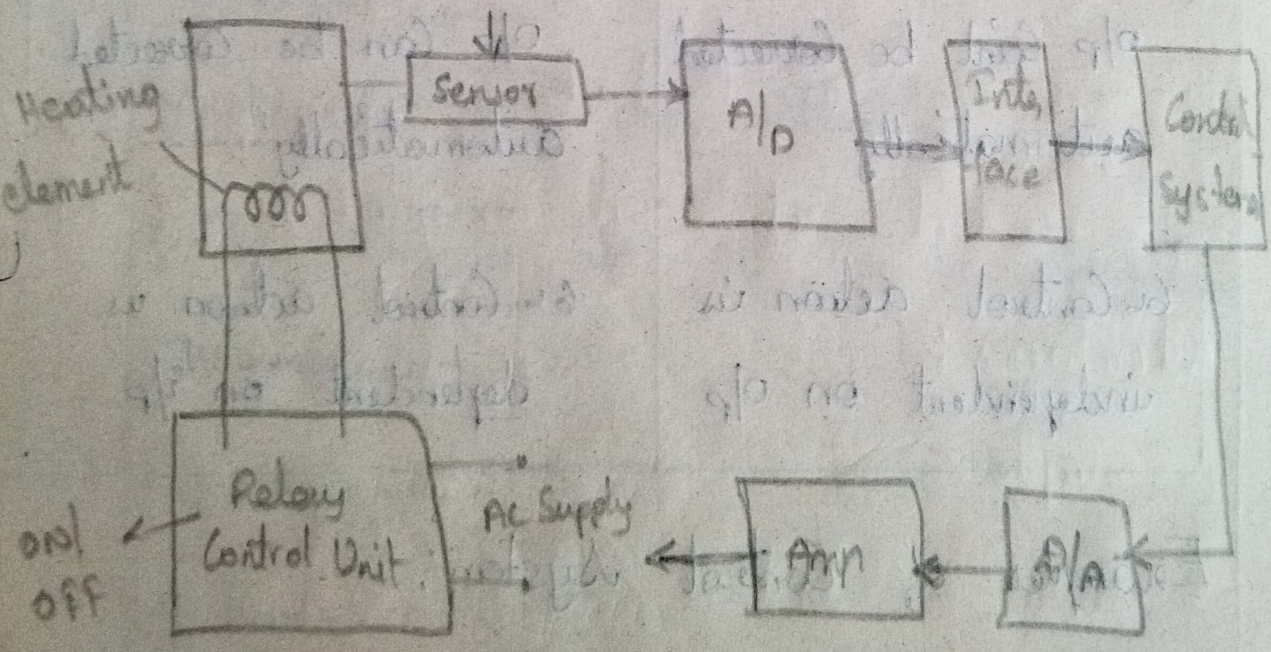 Heating
element
Sensor
A/D
Inter
face
Control
System
Relay
Control Unit
ON/
OFF
AC Supply
Amp
D/A